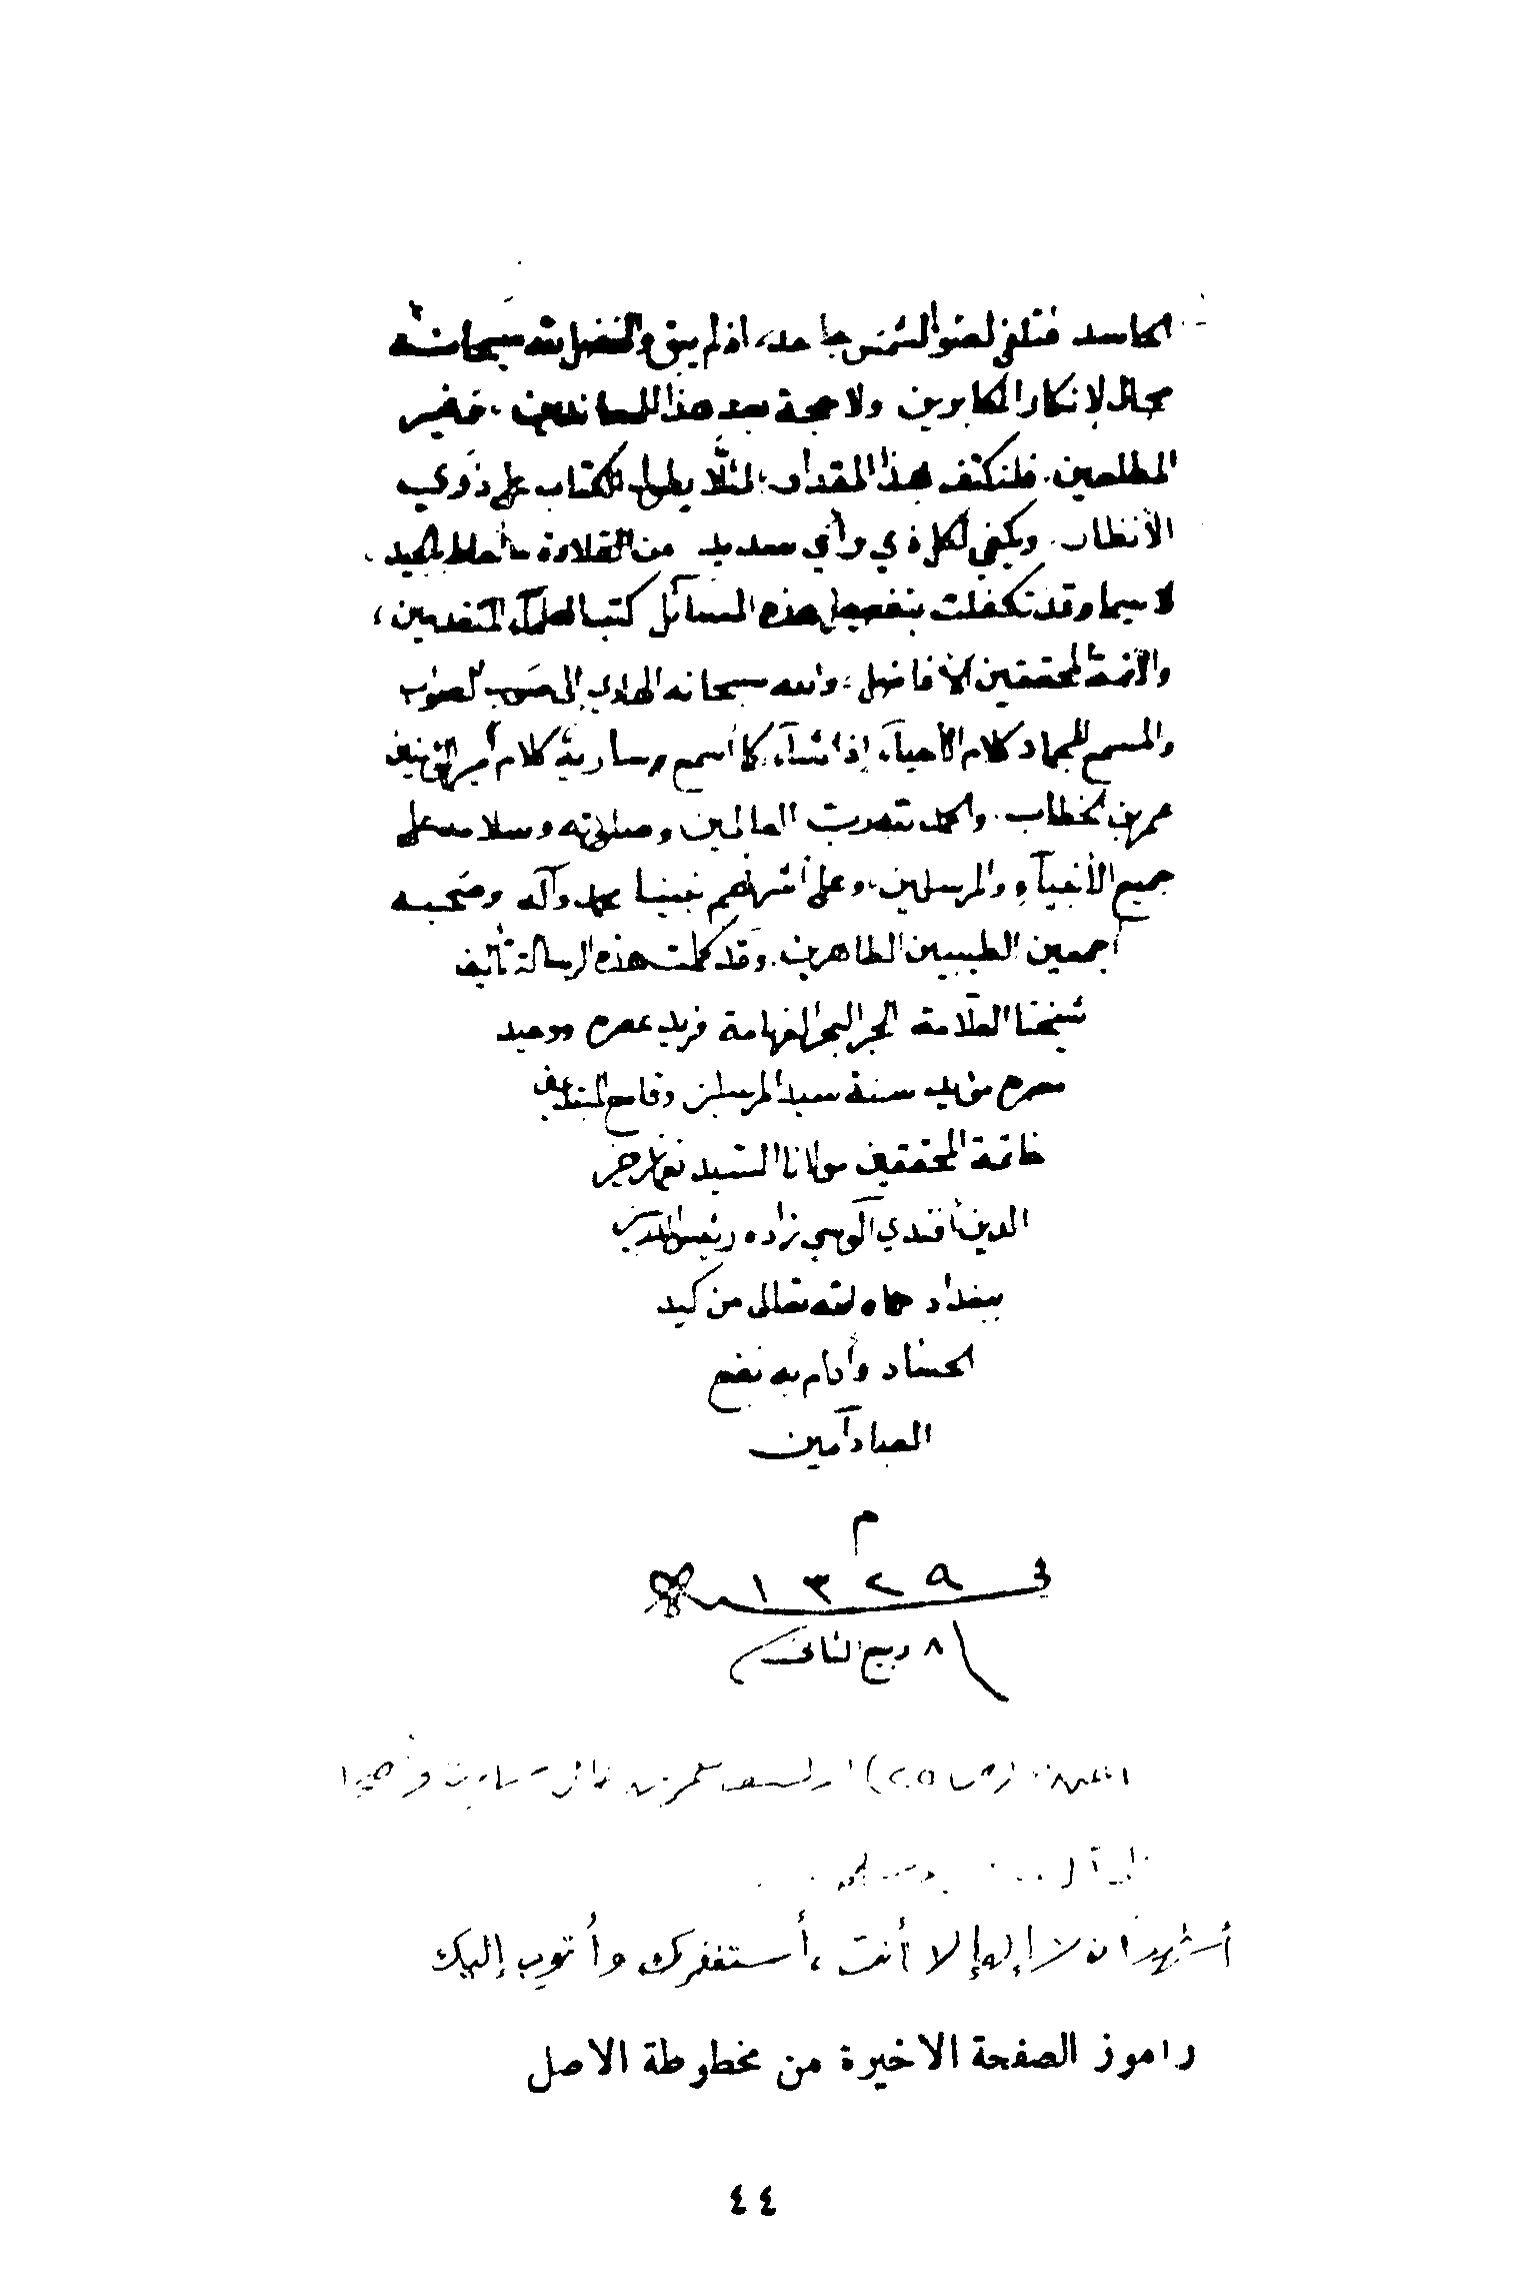 الحاسد فتلفى لضوء الشمس جاحد، اذ لم يبق والفضل لله سبحانه
مجال لإنكار المكابرين ولا حجة بعد هذا للمعاندين، فخير
المطلعين. فلنكتف بهذا المقدار، لئلا يطول الكتاب على ذوي
الأنظار. ويكفي لكل ذي رأي سديد من القلادة ما أحاط بالجيد.
لا سيما وقد تكفلت بتفصيل هذه المسائل كتب العلمآء المتقدمين،
والأئمة المحققين الأفاضل، والله سبحانه الهادي إلى صَوب الصواب
والمسمع للجماد كلام الأحيآء إذا شآء، كما أسمع سارية كلام أمير المؤمنين
عمر بن الخطاب. والحمد لله رب العالمين وصلواته وسلامه على
جميع الأنبيآء والمرسلين، وعلى أشرفهم نبينا محمد وآله وصحبه
أجمعين الطيبين الطاهرين. وقد كملت هذه الرسالة تأليف
شيخنا العلّامة الحبر البحر الفهامة فريد عصره ووحيد
مصره مؤيد سنة سيد المرسلين وقامع المبتدعين
خاتمة المحققين مولانا السيد نعمان خير
الدين أفندي آلوسي زاده رئيس المدرسين
ببغداد حماه الله تعالى من كيد
الحسّاد وأدام به نفع
العباد آمين
م
في ١٣٢٩
٨ ربيع الثاني
أشهد ان لا إله إلا أنت، أستغفرك وأتوب إليك
راموز الصفحة الاخيرة من مخطوطة الاصل
٤٤